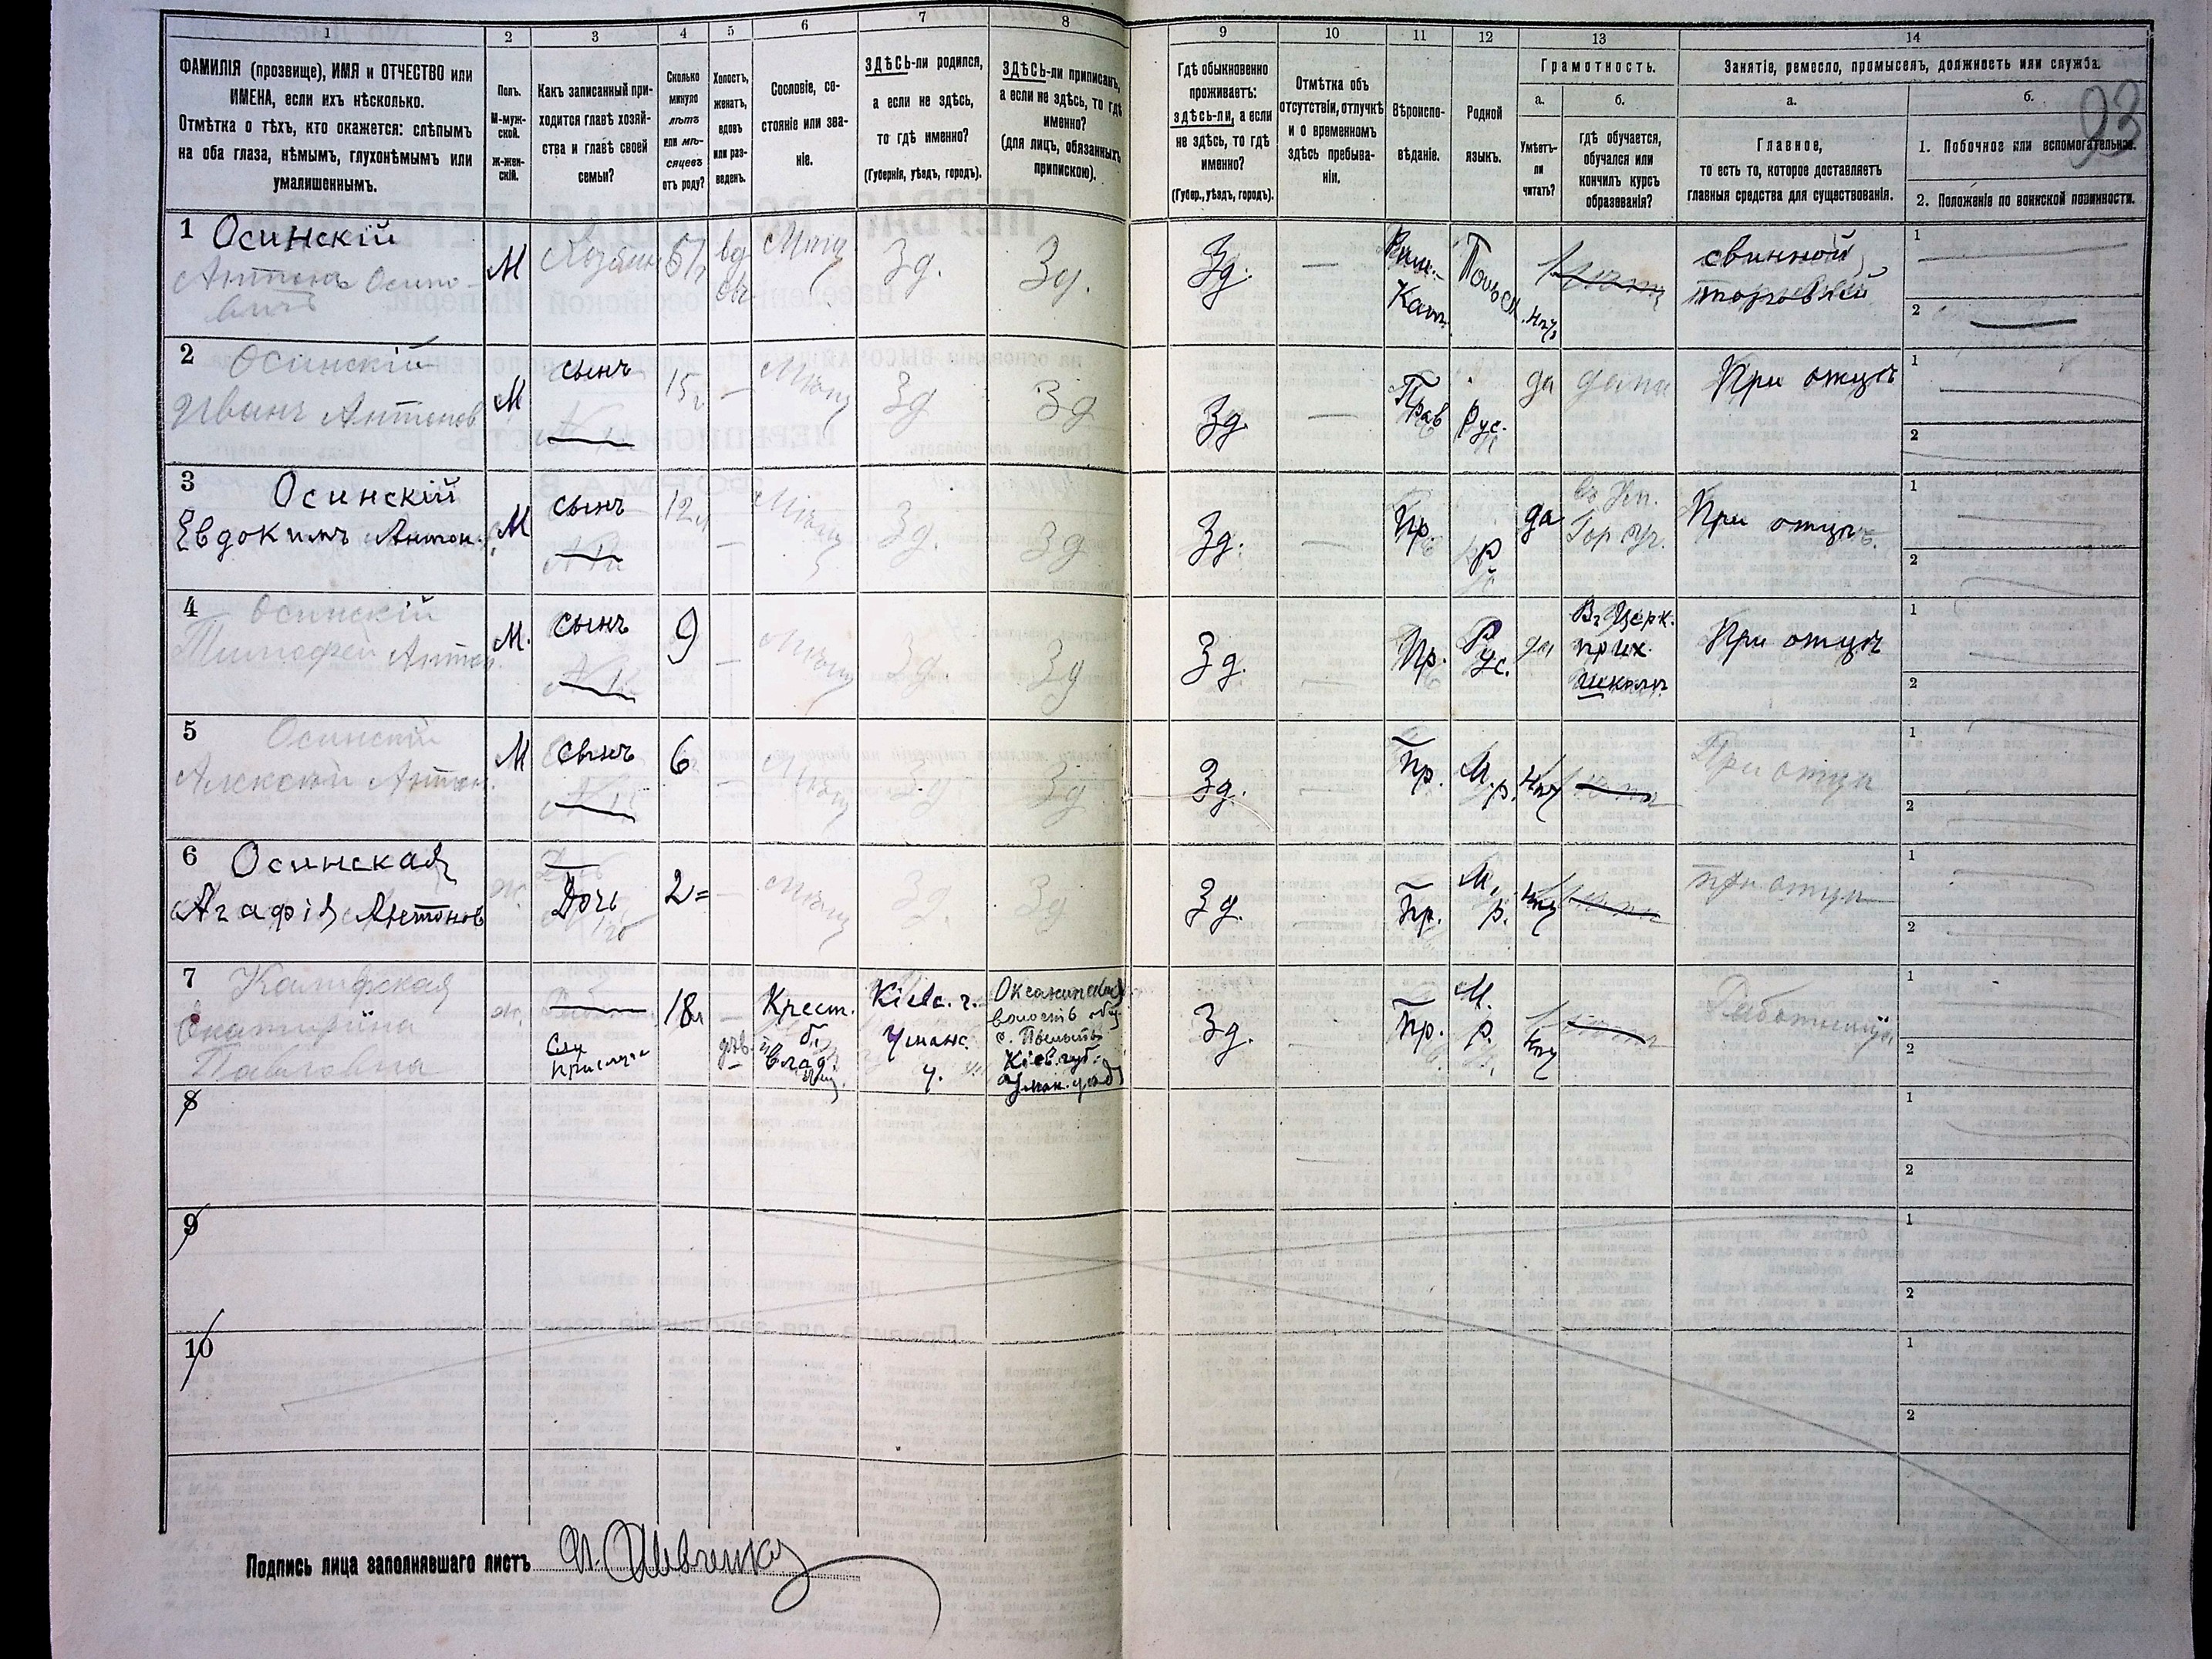 1 2 3 4 5 6 7 8 9 10 11 12 13 14
ФАМИЛІЯ (прозвище), ИМЯ и ОТЧЕСТВО или
ИМЕНА, если ихъ нѣсколько.
Отмѣтка о тѣхъ, кто окажется: слѣпымъ
на оба глаза, нѣмымъ, глухонѣмымъ или
умалишеннымъ.
Полъ.
М-муж-
ской.
ж-жен-
скій.
Какъ записанный при-
ходится главѣ хозяй-
ства и главѣ своей
семьи?
Сколько
минуло
лѣтъ
или мѣ-
сяцевъ
отъ роду?
Холостъ,
женатъ,
вдовъ
или раз-
веденъ.
Сословіе, со-
стояніе или зва-
ніе.
ЗДѢСЬ-ли родился,
а если не здѣсь,
то гдѣ именно?
(Губернія, уѣздъ, городъ).
ЗДѢСЬ-ли приписанъ,
а если не здѣсь, то гдѣ
именно?
(для лицъ, обязанныхъ
припискою).
Гдѣ обыкновенно
проживаетъ:
здѣсь-ли, а если
не здѣсь, то гдѣ
именно?
(Губер., уѣздъ, городъ).
Отмѣтка объ
отсутствіи, отлучкѣ
и о временномъ
здѣсь пребыва-
ніи.
Вѣроиспо-
вѣданіе.
Родной
языкъ.
Грамотность.
а.
Умѣетъ-
ли
читать?
б.
гдѣ обучается,
обучался или
кончилъ курсъ
образованія?
Занятія, ремесло, промыселъ, должность или служба.
а.
Главное,
то есть то, которое доставляетъ
главныя средства для существованія.
б.
93
1. Побочное или вспомогательное.
2. Положеніе по воинской повинности.
1 Осинскій
Антонъ Осипо-
вичъ
М Хозяинъ вд Мѣщ Зд. Зд. Зд. —
Рим.-
Кат.
нѣтъ
свинной
торговлей
1
2
2 Осинскій
Иванъ Антонов
М сынъ 15 — Мѣщ Зд Зд Зд. — Прав Рус. да При отцѣ
1
2
3 Осинскій
Евдокимъ Антон.
М сынъ 12 л — Мѣщ Зд. Зд Зд. — Пр. да
Гор. Уч.
При отцѣ.
1
2
4 Осинскій
Тимофей Антон.
М. сынъ 9 — Мѣщ Зд Зд Зд. — Пр. Рус. да
Въ Церк.
прих.
школѣ
При отцѣ
1
2
5 Осинскій
Алексѣй Антон.
М сынъ 6 — Мѣщ Зд Зд Зд. — Пр. М. р. нѣтъ При отцѣ
1
2
6 Осинская
Агафія Антонов
ж. Дочь 2 — Мѣщ Зд. Зд Зд. Пр. М. р. нѣтъ при отцѣ
1
2
7
Екатирина
Павловна
ж.
прислуга
18 л
дѣв.
Крест.
б.
влад.
Кіевс. г.
Уманс.
у.
волость
Кіев. губ.
Уман. уѣзд
Зд. Пр. М. р. нѣтъ Работница
1
2
8
1
2
9
1
2
10
1
2
Подпись лица заполнявшаго листъ Шевченко